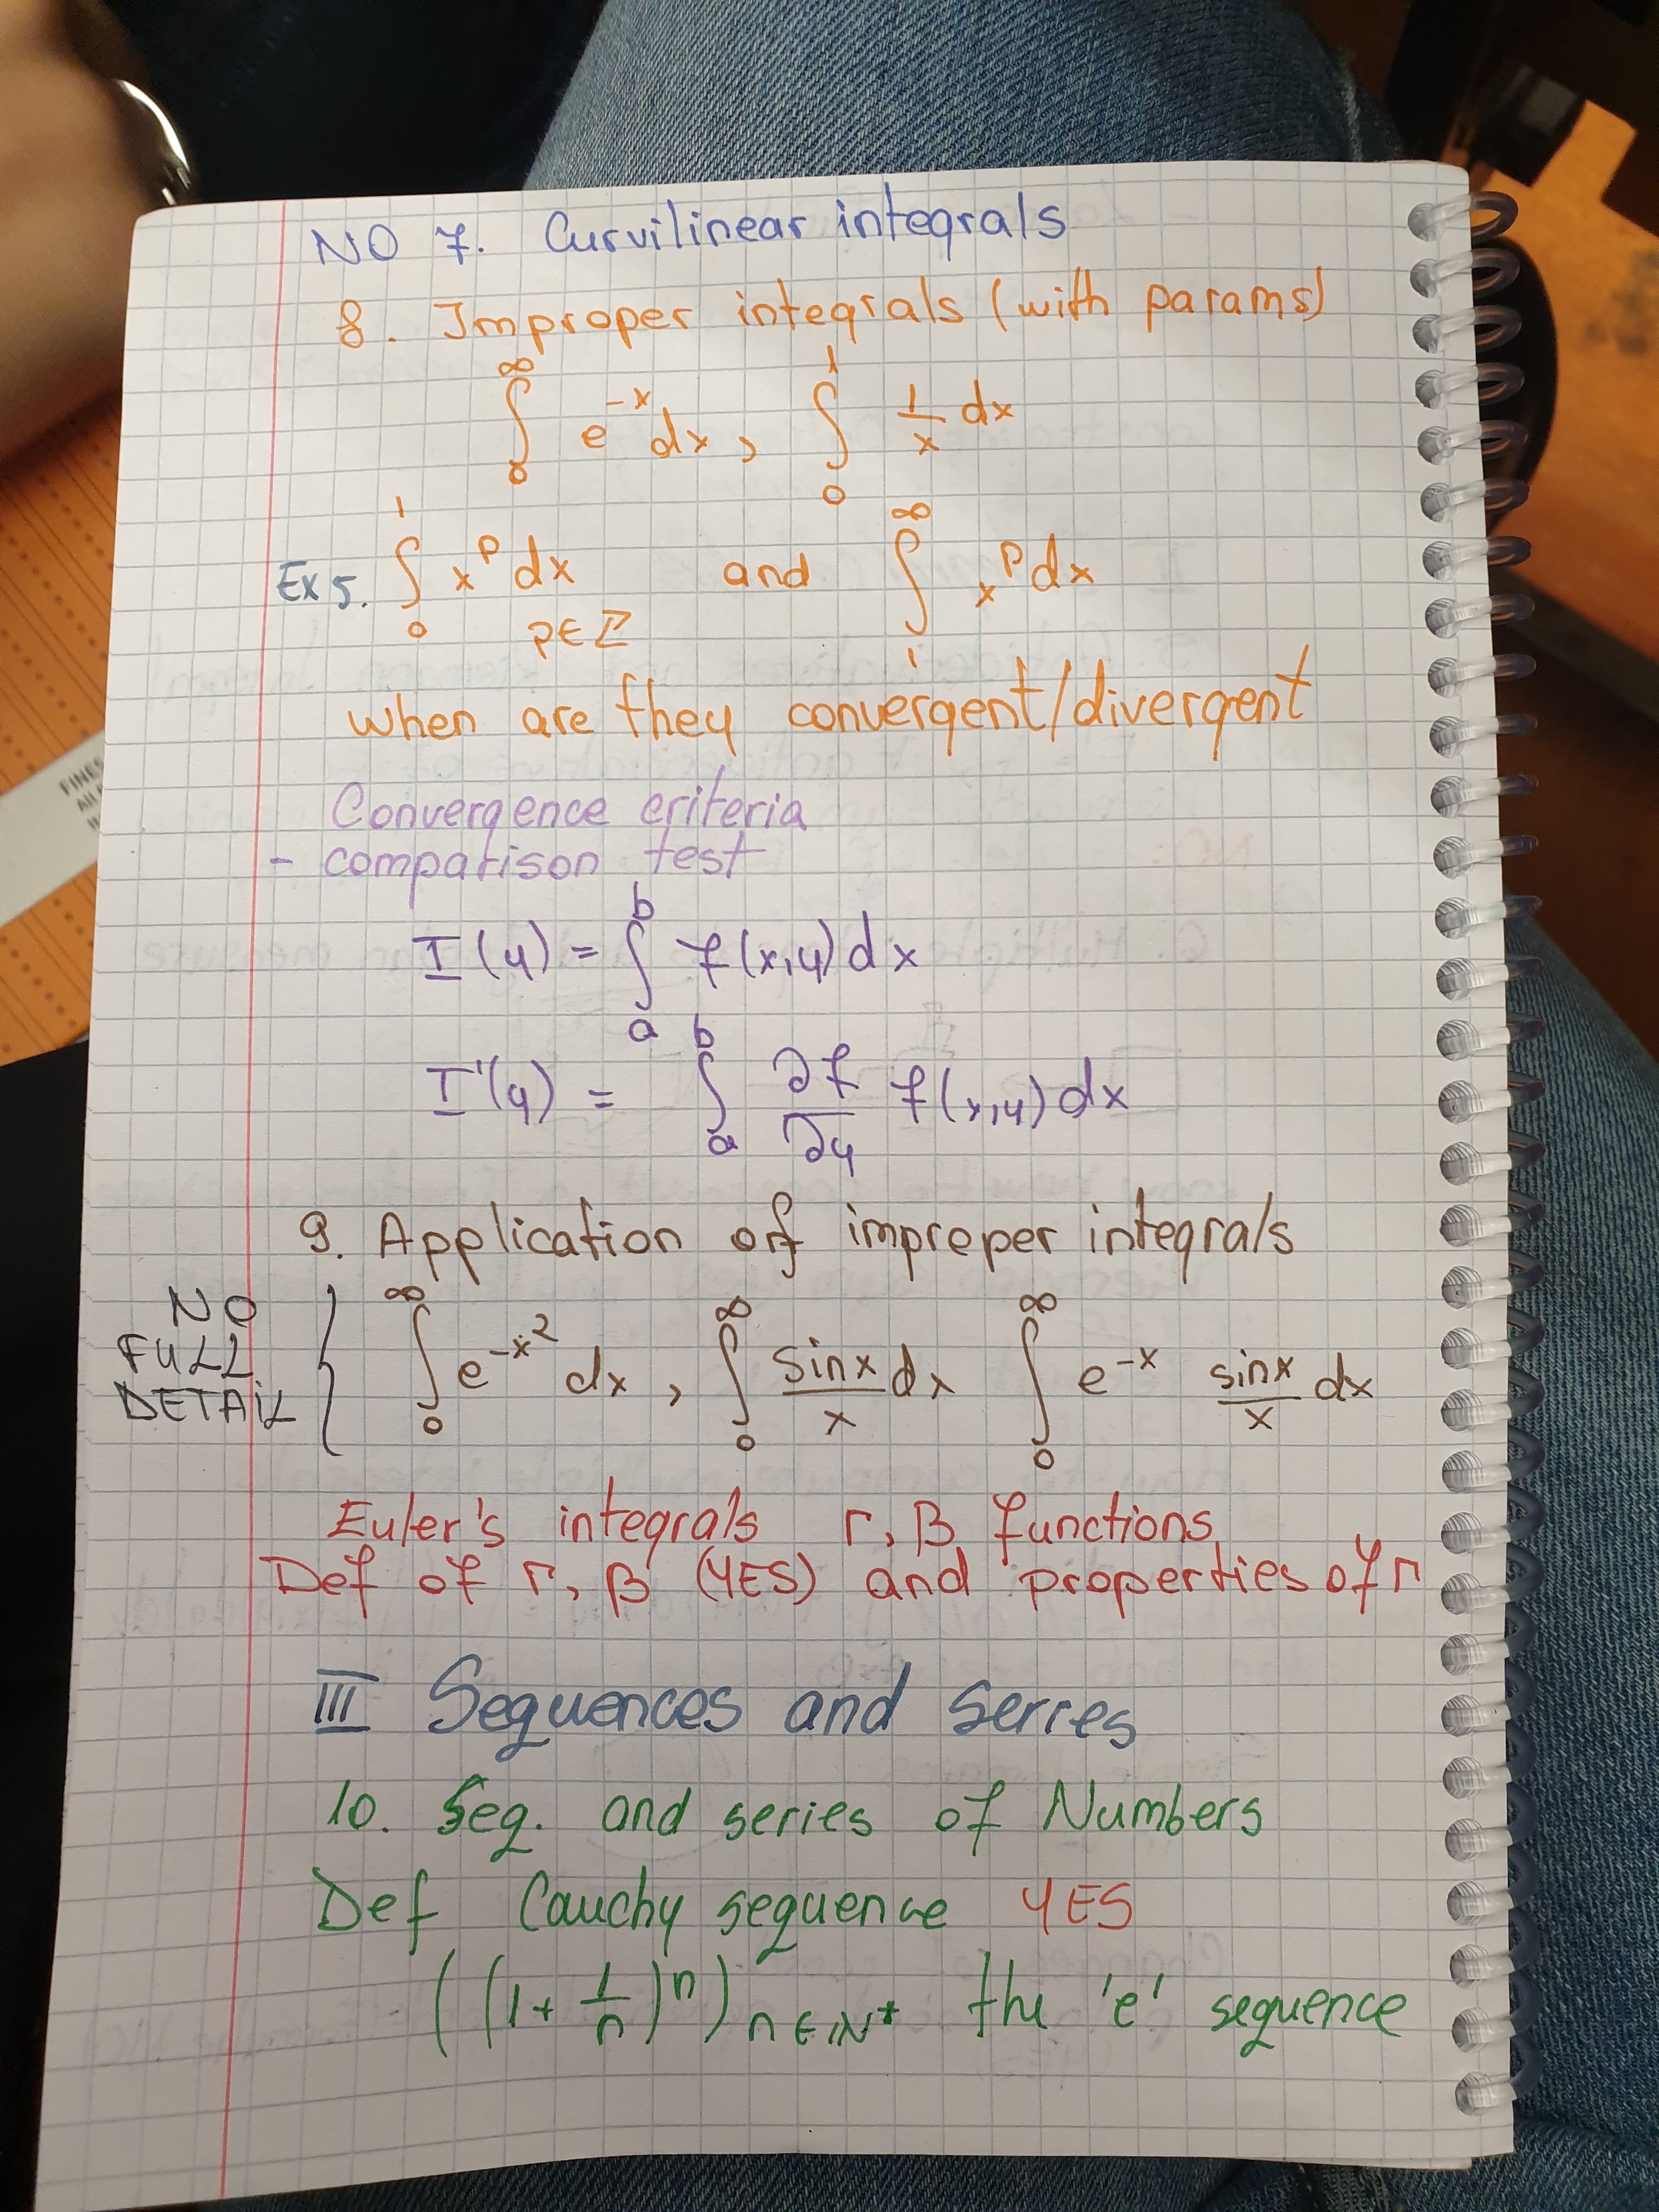 NO 7. Curvilinear integrals
8. Improper integrals (with params)
∫₀^∞ e^{-x} dx, ∫₀^1 1/x dx
Ex 5. ∫₀^1 x^p dx and ∫₁^∞ x^p dx
p∈Z
when are they convergent/divergent
Convergence criteria
- comparison test
I(y) = ∫ₐ^b f(x,y) dx
I'(y) = ∫ₐ^b ∂f/∂y f(x,y) dx
9. Application of improper integrals
NO FULL DETAIL { ∫₀^∞ e^{-x²} dx, ∫₀^∞ sinx/x dx ∫₀^∞ e^{-x} sinx/x dx
Euler's integrals Γ, β functions
Def of Γ, β (YES) and properties of Γ
III Sequences and Series
10. Seq. and series of Numbers
Def Cauchy sequence YES
((1 + 1/n)^n)_{n∈IN*} the 'e' sequence